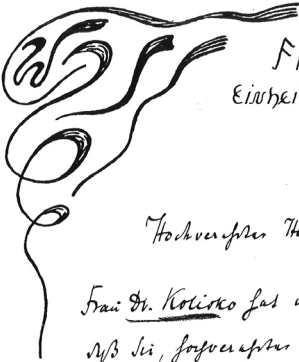 F
Einhei
Hochverehrtes H
Frau Dr. Kolisko hat
daß Sie, hochverehrtes